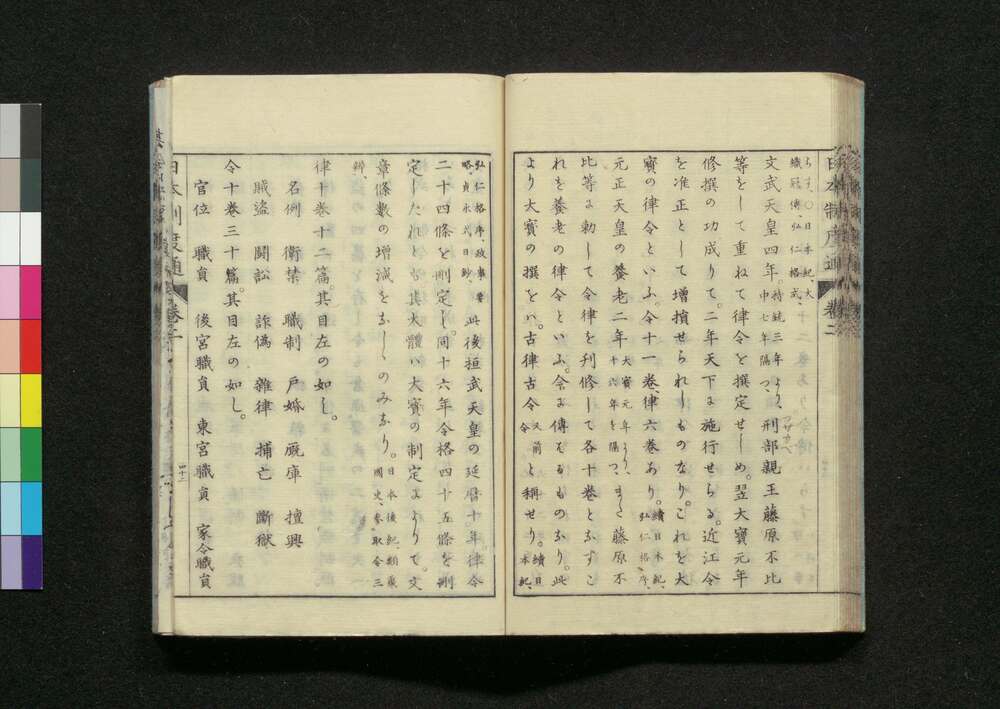 らす、〇日本紀、大
織冠傳、弘仁格式、
文武天皇四年。持統三年より、
申七年隔つ、刑部親王藤原不比
等をして重ねて律令を撰定せしめ。翌大寶元年
修撰の功成りて。二年天下に施行せらる。近江令
を准正として増損せられしものなり。これを大
寶の律令といふ。令十一卷律六卷あり。續日本紀、
弘仁格序、
元正天皇の養老二年大寶元年より、
十六年を隔つ、また藤原不
比等に勅して令律を刋修して各十卷となすこ
れを養老の律令といふ。今に傳ふるものなり。此
より大寶の撰をバ。古律古令又前
令と稱せり。續日
本紀、
日本制度通
卷二
弘仁格序、政事要
略、貞永式目鈔、此後桓武天皇の延曆十年。律令
二十四條を刪定し。同十六年令格四十五條を刪
定したれとも其大體ハ大寶の制定によりて。文
章條數の増減をなしゝのみなり。日本後紀、類聚
國史、參取令三
辨、
律十卷十二篇。其目左の如し。
名例　衛禁　職制　戸婚　厩庫　擅興
賊盗　鬪訟　詐僞　雜律　捕亡　斷獄
令十卷三十篇。其目左の如し。
官位　職員　後宮職員　東宮職員　家令職員
日本制度通
卷二
四十三